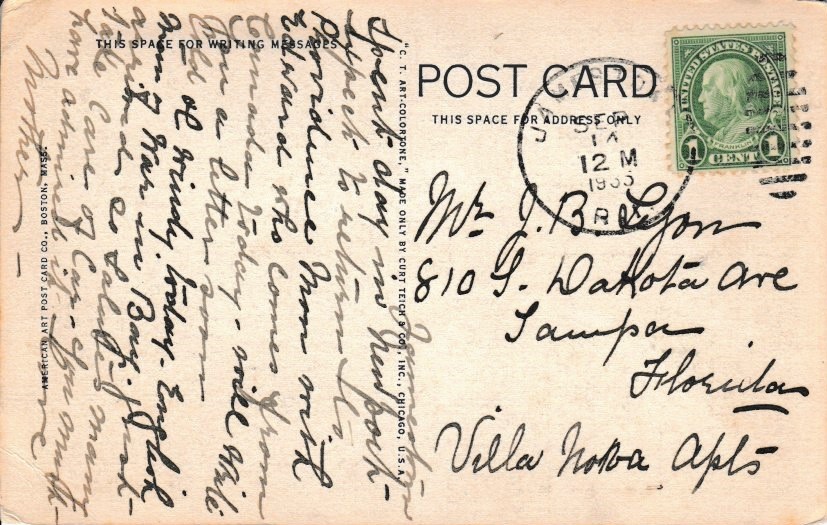 THIS SPACE FOR WRITING MESSAGES
POST CARD
THIS SPACE FOR ADDRESS ONLY
UNITED STATES POSTAGE
FRANKLIN
1 1
CENT
SEP
14
12 M
1933
R.I.
Mr. J. B. Lyon
810 S. Dakota Ave
Tampa
Florida
Villa Nova Apts
Jamestown
Spent day in Newport -
Expect to return to
Providence Mon with
Edward who comes from
Canada today - will write
you a letter soon
Cold & windy today - English
Man of War in Bay, just
arrived, so salutes many
Take care of Car - you must
have admired it
Mother -
"C. T. ART-COLORTONE," MADE ONLY BY CURT TEICH & CO., INC., CHICAGO, U.S.A.
AMERICAN ART POST CARD CO., BOSTON, MASS.